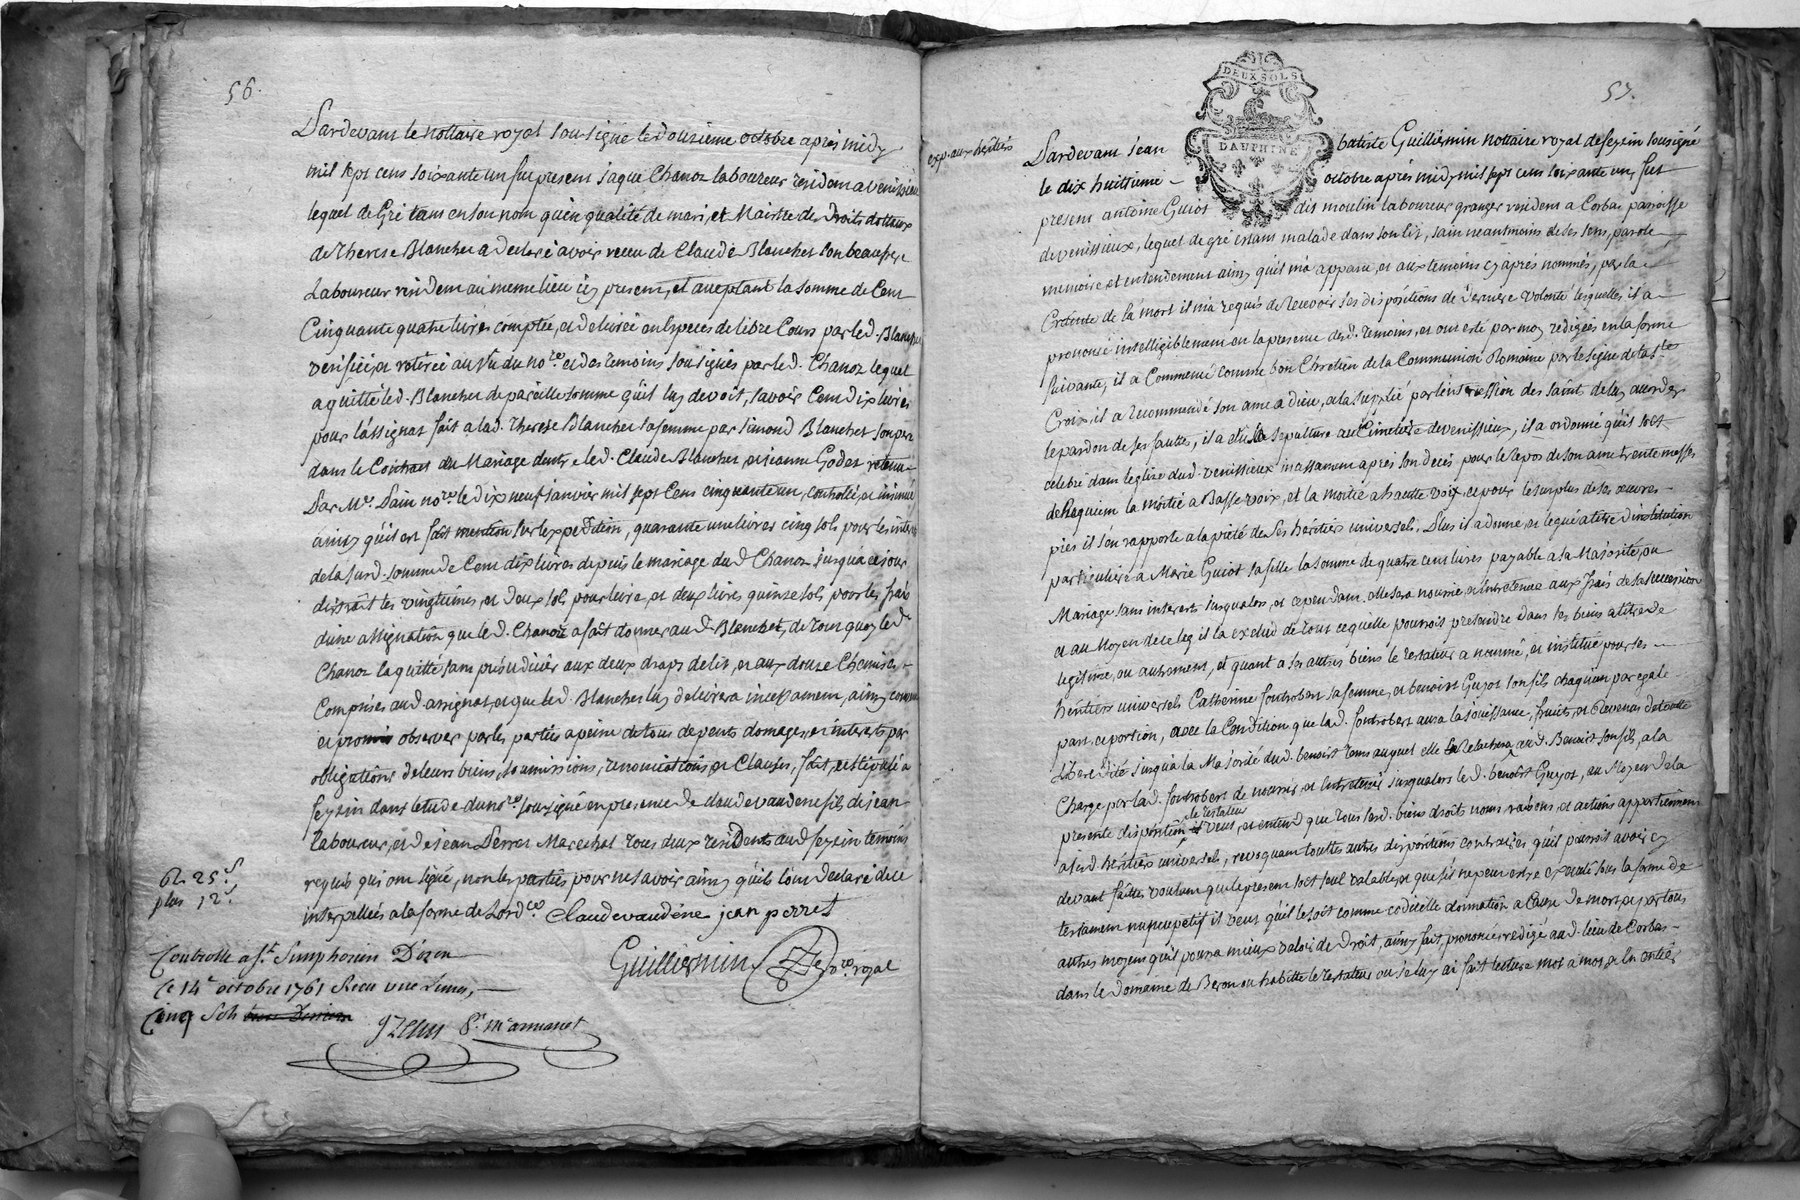 56.
Pardevant le nottaire royal sousigné le dousieme octobre après midy
mil sept cens soixante un fut present jaque Chanoz laboureur resident a venissieu
lequel de Gré tant en son nom qu'en qualité de mari, et Maistre des Droits dottaux
de therese Blanchet a declaré avoir receu de Claude Blanchet son beaupere
Laboureur resident au meme lieu icy present, et acceptant la somme de Cent
Cinquante quatre livres comptée, et delivrée en especes de libre Cours par led. Blanchet
verifiée, et retirée au Vu du no.re et des temoins sousignés par led. Chanoz lequel
a quitté led. Blanchet de pareille somme qu'il luy devoit, savoir Cent dix livres
pour l'assignat fait a lad. Therese Blanchet sa femme par Simond Blanchet son pere
dans le Contract du Mariage d'entre led. Claude Blanchet, et jeanne Godet retenu
Par M.e Pain no.re le dix neuf janvier mil sept Cens cinquante un, controllé, et insinué
ainsy qu'il est fait mention sur l'expedition, quarante une livres cinq sols pour les interets
de la susd. somme de Cent dix livres depuis le mariage dud Chanoz jusqu'a ce jour
distrait les vingtiemes, et deux sols pour livre, et deux livres quinze sols pour les frais
d'une assignation que led. Chanoz a fait donner aud Blanchet, de tout quoy led.
Chanoz l'a quitté sans préjudicier aux deux draps de lit, et aux douze Chemises
Comprises aud. assignat, et que led. Blanchet luy delivrera incessament, ainsy convenu
et promis observer par les parties a peine de tous depents domages, et interets par
obligations de leurs biens, soumissions, renonciations, et Clauses, fait, et stipulé a
feyzin dans l'etude du no.re sousigné en presence de claude vaudene fils de jean
laboureur, et de jean Perret Marechal tous deux residents aud feyzin temoins
requis qui ont signé, non les parties pour ne savoir ainsy qu'ils l'ont declaré de ce
interpellées a la forme de l'ord.ce Claude vaudéne jean perret
6 25 s
plus 12 s
Guilliermin no.re royal
Controllé a S.t Simphorien D'ozon
le 14.e octobre 1761 Receu une Livre,
Cinq Sols
57.
DEUX SOLS
DAUPHINE
exp. aux heritiers
Pardevant jean batiste Guilliermin nottaire royal de feyzin sousigné
le dix huittieme octobre après midy mil sept cens soixante un, fut
present antoine Guiot dis moulin laboureur granger resident a Corbas paroisse
de venissieux, lequel de gré estant malade dans son lit, sain neantmoins de ses sens, parole,
memoire et entendement ainsy qu'il m'a apparu, et aux temoins cy après nommés, par la
Crainte de la mort il m'a requis de recevoir ses dispositions de derniere volonté lesquelles il a
prononcé intelligiblement en la presence desd. temoins, et ont esté par moy redigées en la forme
suivante, il a Commencé comme bon Chretien de la Communion Romaine par le signe de la S.te
Croix, il a recommandé son ame a dieu, et la supplié par l'intercession des saint de luy accorder
le pardon de ses fautes, il a elu sa sepulture au Cimetiere de venissieux, il a ordonné qu'il soit
celebré dans leglise dud. venissieux incessament après son decès pour le repos de son ame trente messes
de Requiem la moitié a Basse voix, et la moitié a haute voix, et pour le surplus de ses oeuvres
pies il s'en rapporte a la pieté de ses heritiers universels. Plus il a donné, et legué a titre d'institution
particuliere a Marie Guiot sa fille la somme de quatre cent livres payable a sa Majorité, ou
Mariage sans interets jusqu'alors, et cependant elle sera nourrie et entretenue aux frais de sa succession
et au Moyen de ce leg il l'a exclud de tout ce quelle pourroit pretendre dans ses biens a titre de
legitime, ou autrement, et quant a ses autres biens le testateur a nommé, et institué pour ses
heritiers universels Catherine fontrobert sa femme, et benoist Guyot son fils chaqu'un par egale
part, et portion, avec la Condition que lad. fontrobert aura la jouissance, fruits, et Revenus de toutte
L'heredité jusqu'a la Majorité dud. benoist tems auquel elle la relachera aud. Benoist son fils, a la
Charge par lad. fontrobert de nourrir, et entretenir jusqu'alors led. benoist Guyot, au Moyen de la
presente disposition le testateur veut, et entend que tous sesd. biens droits noms raisons, et actions appartiennent
a sesd. heritiers universels, revoquant touttes autres dispositions contraires qu'il pourroit avoir cy
devant faittes voulant que le present soit seul valable, et que s'il ne peut estre executé sous la forme de
testament nuncupatif il veut qu'il le soit comme codicille donnation a Cause de mort, et par tous
autres moyens qu'il poura mieux valoir de Droit, ainsy fait, prononcé, redigé aud. lieu de Corbas
dans le Domaine de Beron ou habitte le testateur ou je luy ai fait lecture mot a mot, et en entier